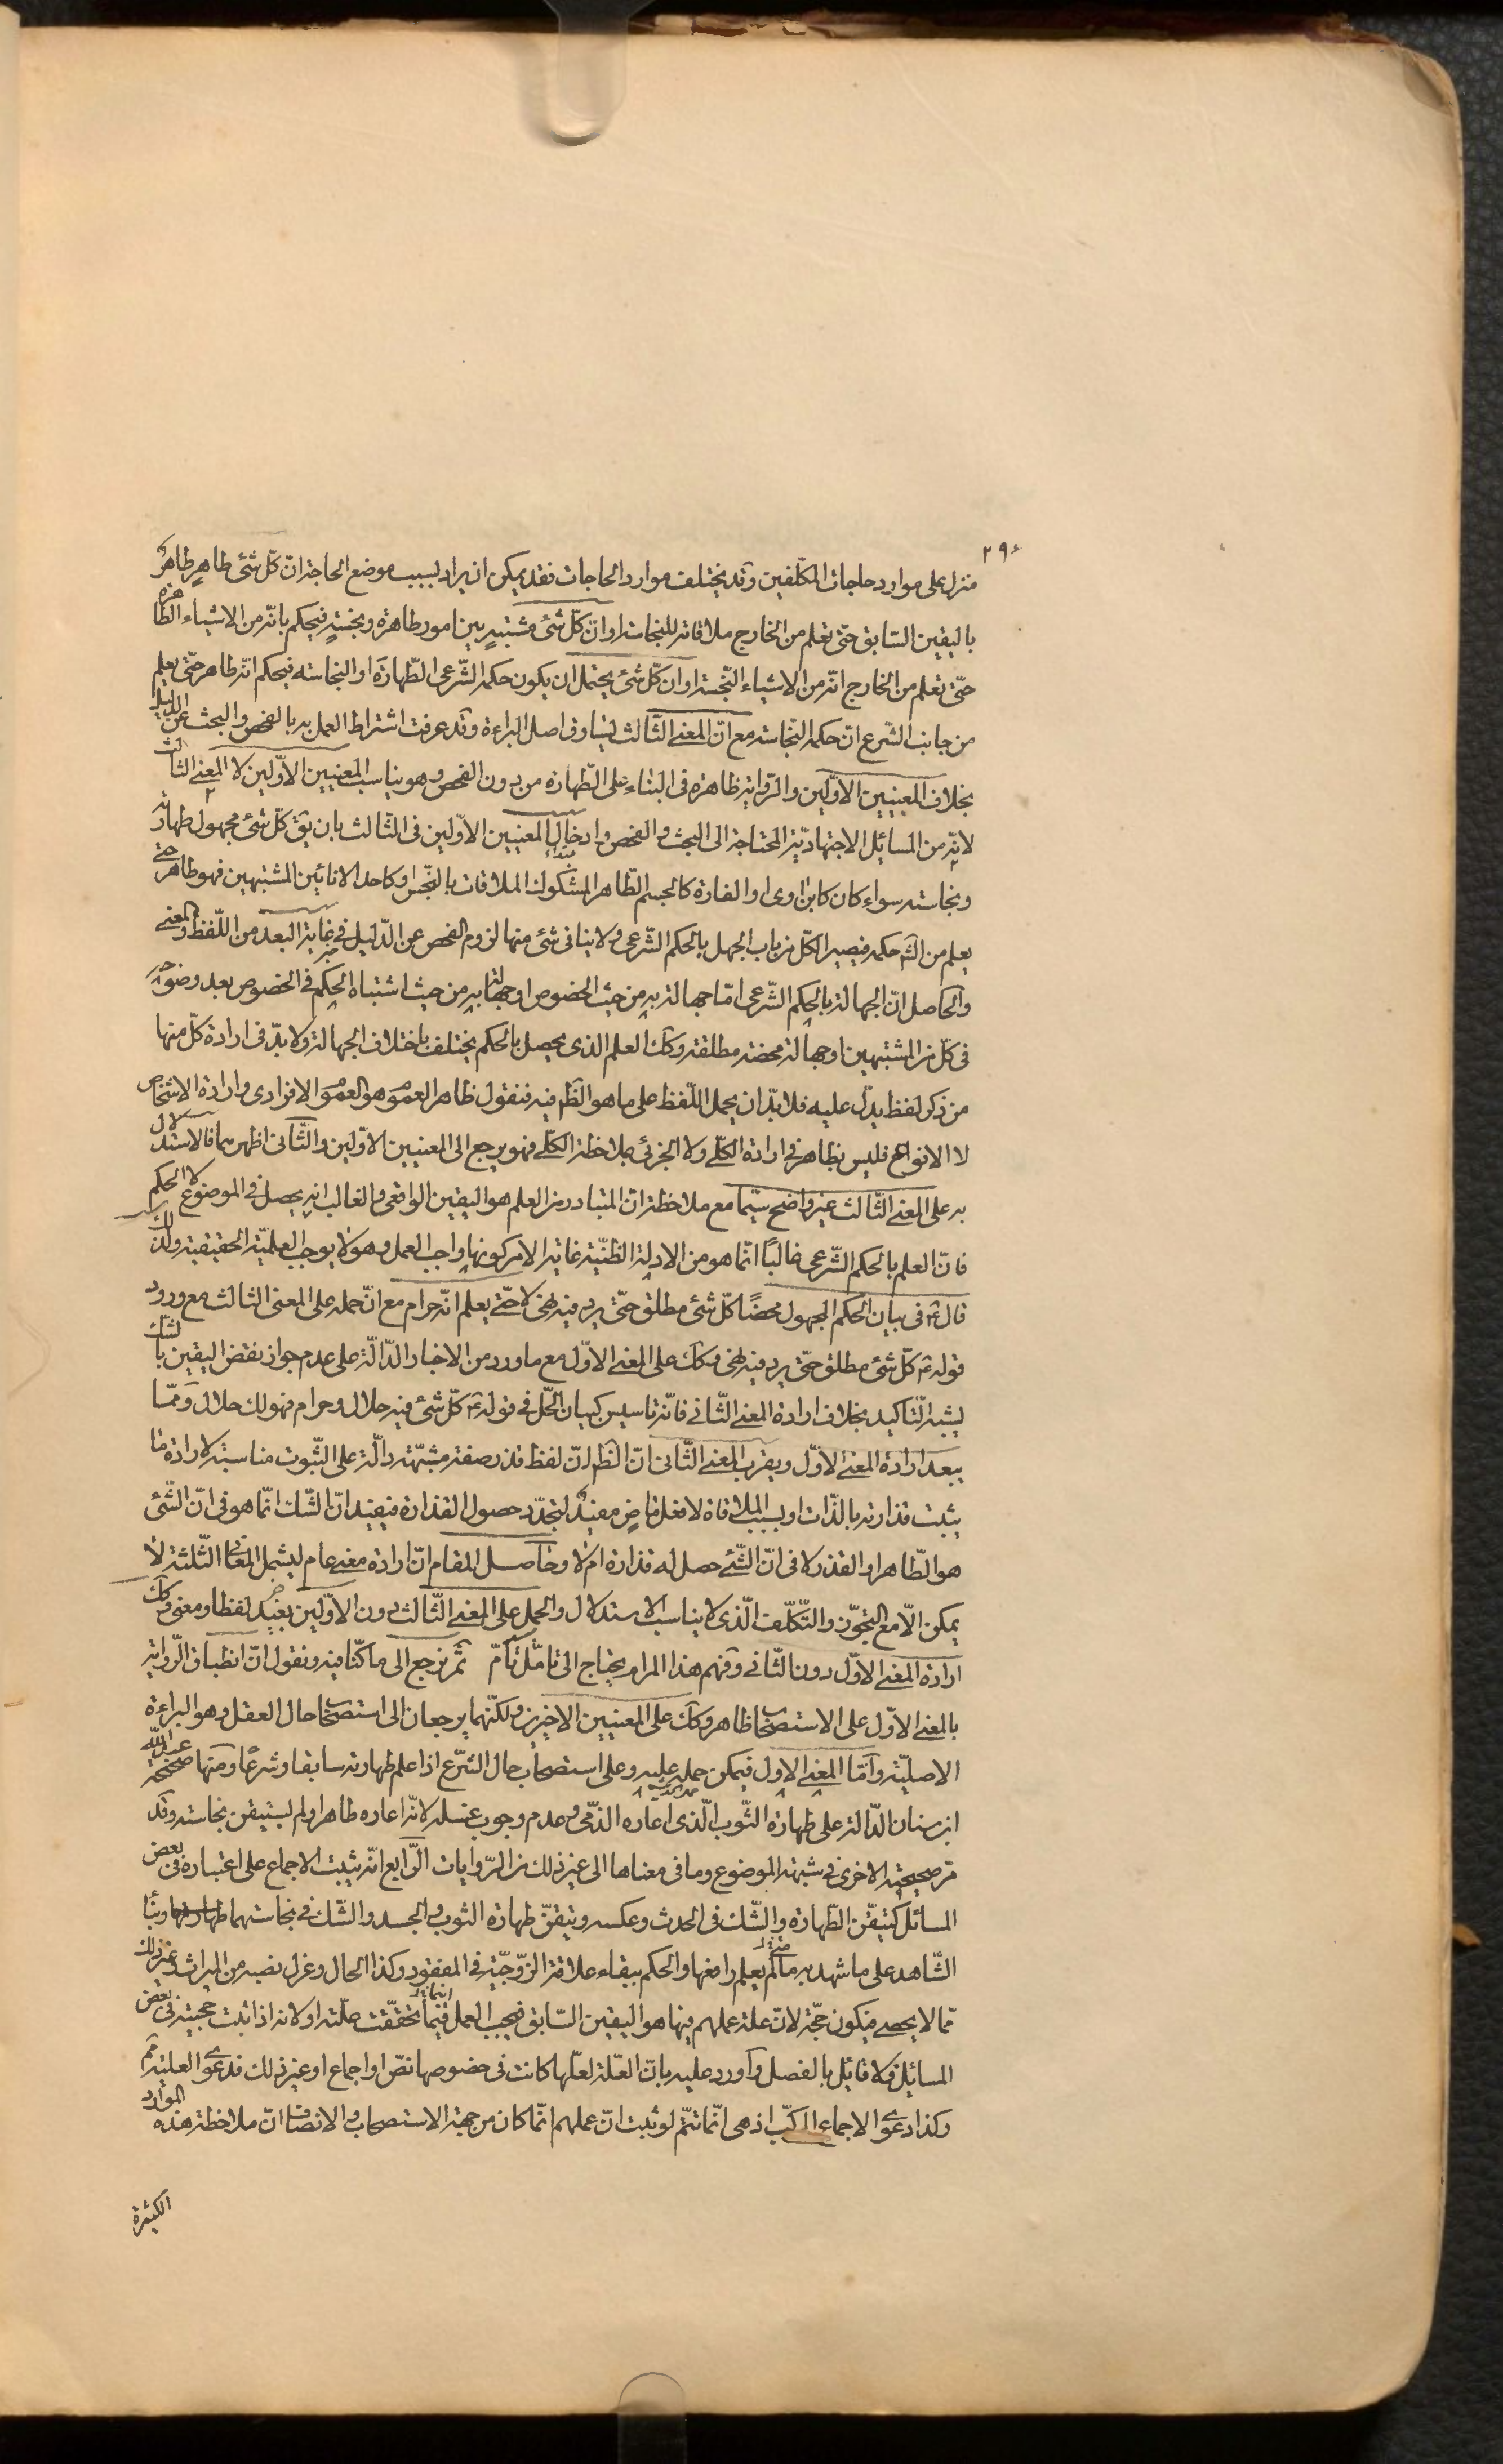 ٢٩٤
منزل على موارد حاجات المكلّفين وقد يختلف موارد الحاجات فقد يمكن ان يراد بسبب موضع الحاجة انّ كلّ شئ طاهر طاهرٌ
باليقين السّابق حتّى تعلم من الخارج ملاقاته للنجاسة او انّ كلّ شئ مشتبه بين امور طاهرة ونجسة فيحكم بانّه من الاشياء الطّاهرة
حتّى تعلم من الخارج انّه من الاشياء النّجسة او ان كلّ شئ يحتمل ان يكون حكمه الشّرعى الطّهارة او النجاسة فيحكم انّه طاهر حتّى يعلم
من جانب الشّرع انّ حكمه النّجاسة مع انّ المعنى الثّالث يساوق اصل البراءة وقد عرفت اشتراط العمل به بالفحص والبحث عن الدّليل
بخلاف المعنيين الاوّلين والرّواية ظاهرة فى البناء على الطّهارة من بدون الفحص وهو يناسب المعنيين الاوّلين لا المعنى الثّالث
لانّه من المسائل الاجتهاديّة المحتاجة الى البحث والفحص وادخال المعنيين الاوّلين فى الثّالث بان يق كلّ شئ مجهول طهارته
ونجاسته سواء كان كابن اوى او الفارة كالجسم الطّاهر المشكوك الملاقات بالنّجس او كاحد الانائين المشتبهين فهو طاهر حتّى
يعلم من الشّ حكمه فيصير الكلّ من باب الجهل بالحكم الشّرعى ولا ينافى شئ منها لزوم الفحص عن الدّليل فى غاية البعد من اللّفظ والمعنى
والحاصل انّ الجهالة بالحكم الشّرعى امّا جهالة به من حيث الخصوص او جهالة به من حيث اشتباه الحكم فى الخصوص بعد وضوحه
فى كلّ من المشتبهين او جهالة محضة مطلقة وكك العلم الذى يحصل بالحكم يختلف باختلاف الجهالة ولا بدّ فى ارادة كلّ منها
من ذكر لفظ يدلّ عليه فلا بدّ ان يحمل اللّفظ على ما هو الظّ فيه فنقول ظاهر العموم هو العموم الافرادى وارادة الاشخاص
لا الانواع فليس بظاهر فى ارادة الكلّى ولا الجزئى بملاحظة الكلّى فهو يرجع الى المعنيين الاوّلين والثّانى اظهرهما فالاستدلال
به على المعنى الثّالث غير واضح سيّما مع ملاحظة انّ المتبادر من العلم هو اليقين الواقعى والغالب انه يحصل فى الموضوع لا الحكم
فانّ العلم بالحكم الشّرعى غالبًا انّما هو من الادلة الظنّية غاية الامر كونها واجب العمل وهو لا يوجب العلميّة الحقيقية ولذلك
قال ع فى بيان الحكم المجهول محضًا كلّ شئ مطلق حتّى يرد فيه نهى لا حتّى يعلم انّه حرام مع انّ حمله على المعنى الثالث مع ورود
قوله ع كلّ شئ مطلق حتّى يرد فيه نهى وكك على المعنى الاوّل مع ما ورد من الاخبار الدّالّة على عدم جواز نقض اليقين بالشّك
يشبه التّاكيد بخلاف ارادة المعنى الثّانى فانّه تاسيس كبيان الحلّ فى قوله ع كلّ شئ فيه حلال وحرام فهو لك حلال وممّا
يبعد ارادة المعنى الاوّل ويقرب المعنى الثّانى انّ الظّ انّ لفظ قذر صفة مشبّهة دالّة على الثّبوت مناسبة لارادة ما
يثبت قذارته بالذّات او بسبب الملاقاة لا فعل ماضٍ مفيد لتجدّد حصول القذارة فيفيد انّ الشّك انّما هو فى انّ الشّئ
هو الطّاهر او القذر لا فى انّ الشّئ حصل له قذارة ام لا وحاصل المقام انّ ارادة معنى عام ليشمل المعانى الثّلثة لا
يمكن الّا مع التجوّز والتّكلّف الّذى لا يناسب الاستدلال والحمل على المعنى الثّالث دون الاوّلين بعيد لفظا ومعنى وكك
ارادة المعنى الاوّل دون الثّانى وفهم هذا المرام يحتاج الى تامّل تامّ ثمّ نرجع الى ما كنّا فيه ونقول انّ انطباق الرّواية
بالمعنى الاوّل على الاستصحاب ظاهر وكك على المعنيين الاخيرين ولكنّهما يرجعان الى استصحاب حال العقل وهو البراءة
الاصليّة وامّا المعنى الاول فيمكن حمله عليه وعلى استصحاب حال الشّرع اذا علم طهارته سابقا وشرعًا ومنها صحيحة عبد اللّه
ابن سنان الدّالة على طهارة الثّوب الّذى اعاره الذّمى وعدم وجوب غسله لانّه اعاره طاهرا ولم يستيقن نجاسته وقد
مرّ صحيحته الاخرى فى شبهة الموضوع وما فى معناها الى غير ذلك من الرّوايات الرّابع انّه يثبت الاجماع على اعتباره فى بعض
المسائل كتيقّن الطّهارة والشّك فى الحدث وعكسه وتيقّن طهارة الثوب والجسد والشّك فى نجاستهما وبناء
الشّاهد على ما شهد به ما لم يعلم رافعها والحكم ببقاء علاقة الزّوجيّة فى المفقود وكذا الحال وعزل نصيبه من الميراث وغير ذلك
ممّا لا يحصى فيكون حجّة لانّ علة عملهم فيها هو اليقين السّابق فيجب العمل فيما تحقّقت علّته او لانه اذا ثبت حجيته فى بعض
المسائل فلا قائل بالفصل واورد عليه بانّ العلّة لعلّها كانت فى خصوصها نصّ او اجماع او غير ذلك فدعوى العلية مم
وكذا دعوى الاجماع المركّب اذ هى انّما تتمّ لو ثبت انّ عملهم انّما كان من جهة الاستصحاب والانصاف انّ ملاحظة هذه الموارد
الكثيرة